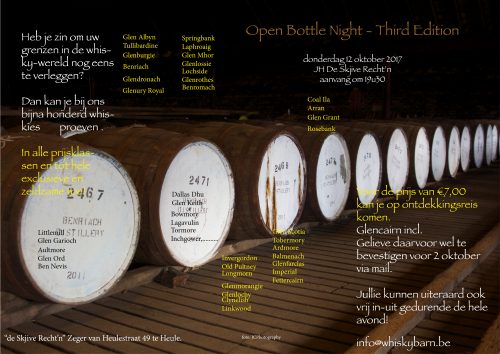 Open Bottle Night - Third Edition
donderdag 12 oktober 2017
JH De Skjive Recht'n
aanvang om 19u30
Heb je zin om uw
grenzen in de whis-
ky-wereld nog eens
te verleggen?
Dan kan je bij ons
bijna honderd whis-
kies proeven .
In alle prijsklas-
sen en tot hele
exclusieve en
zeldzame
Glen Albyn
Tullibardine
Glenburgie
Benriach
Glendronach
Glenury Royal
Springbank
Laphroaig
Glen Mhor
Glenlossie
Lochside
Glenrothes
Benromach
Coal Ila
Arran
Glen Grant
Rosebank
2467
BENRIACH
DISTILLERY
2011
2471
Littlemill
Glen Garioch
Aultmore
Glen Ord
Ben Nevis
Dallas Dhu
Glen Keith
Bowmore
Lagavulin
Tormore
Inchgower,.........
Invergordon
Old Pultney
Longmorn
Glenmorangie
Glenlochy
Clynelish
Linkwood
Glen Scotia
Tobermory
Ardmore
Balmenach
Glenfarclas
Imperial
Fettercairn
Voor de prijs van €7,00
kan je op ontdekkingsreis
komen.
Glencairn incl.
Gelieve daarvoor wel te
bevestigen voor 2 oktober
via mail.
Jullie kunnen uiteraard ook
vrij in-uit gedurende de hele
avond!
info@whiskybarn.be
"de Skjive Recht'n" Zeger van Heulestraat 49 te Heule.